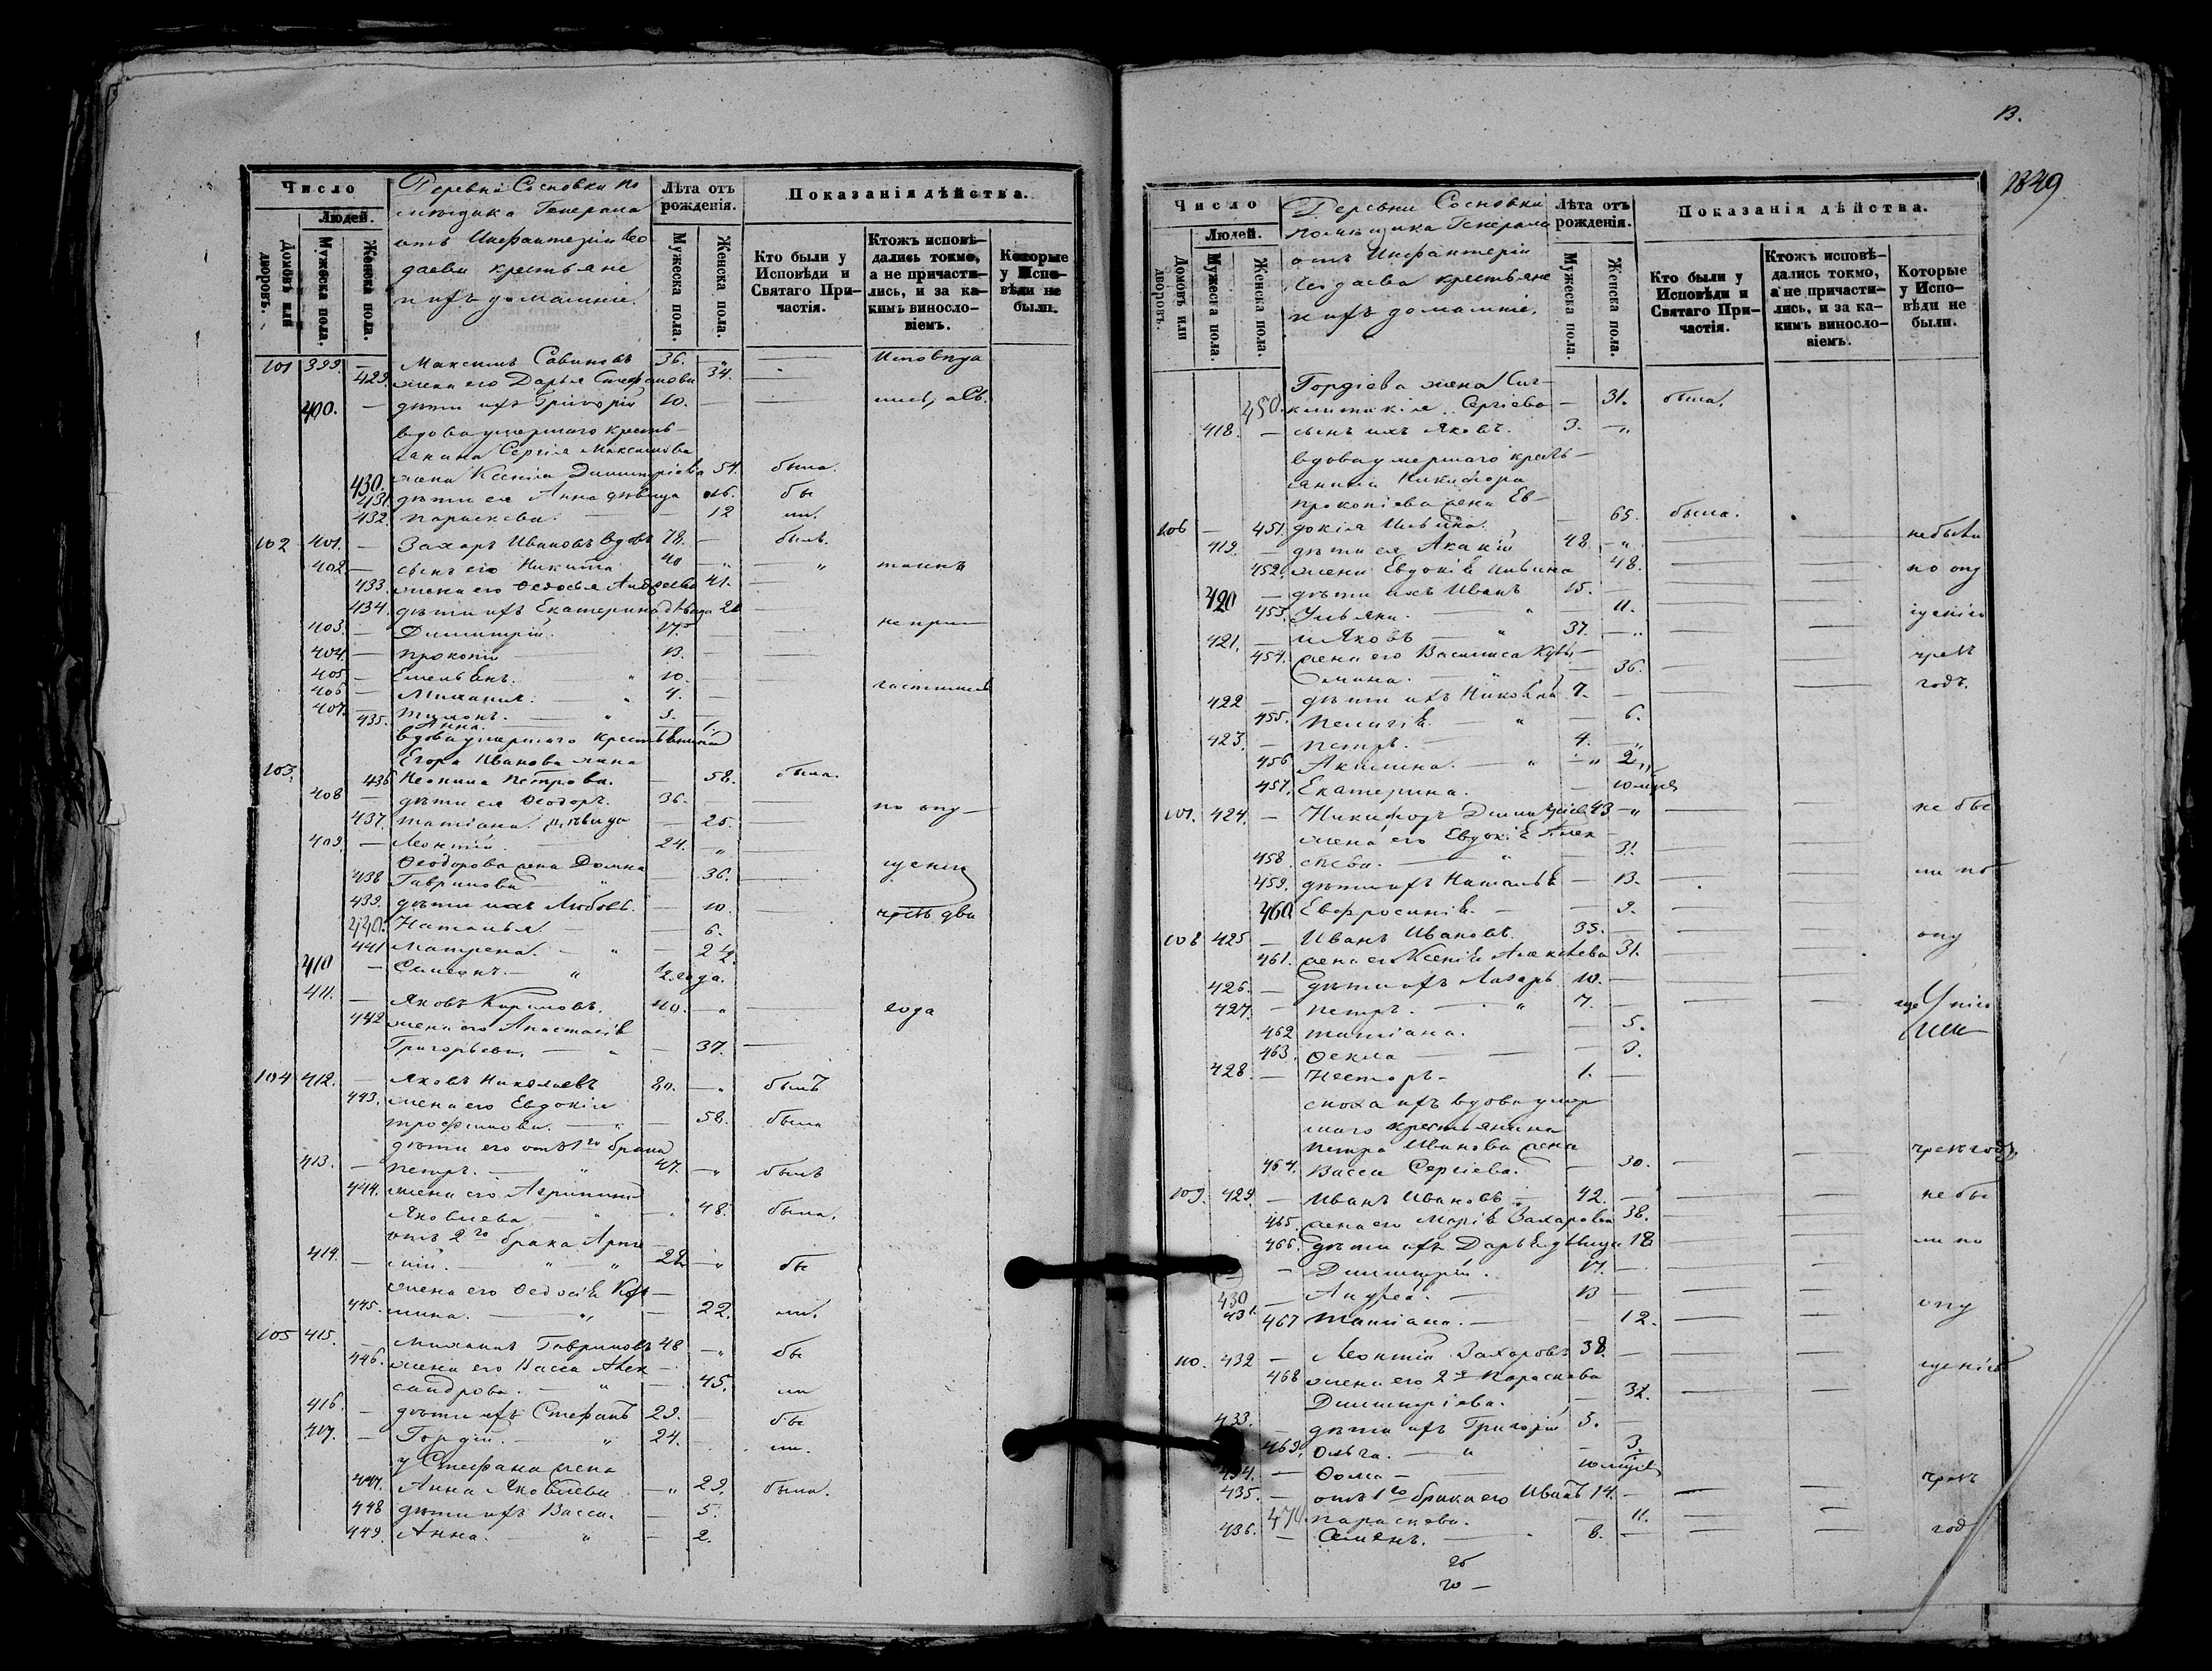 Число
Людей.
Домовъ или дворовъ.
Мужеска пола.
Женска пола.
Деревни Сосновки по
мѣщика Генерала
отъ Инфантеріи
крестьяне
и ихъ домашніе.
Лѣта отъ рожденія.
Мужеска пола.
Женска пола.
Показанія дѣйства.
Кто были у Исповѣди и Святаго Причастія.
Ктожъ исповѣдались токмо, а не причастились, и за какимъ винословіемъ.
Которые у Исповѣди не были.
101 399. — Максимъ Савиновъ 36. — Исповѣда
429. жена его Дарья Стефанова 34.
400. — дѣти ихъ Григорій 10. — лись, а Св.
вдова умершаго кресть-
янина Сергія Максимова
430. жена Ксенія Димитріева 54. была.
431. дѣти ея Анна дѣвица 16. бы
432. Параскева. — 12 ли.
102 401. — Захаръ Ивановъ вдовъ 78. — былъ.
402. — сынъ его Никита 40 — таинъ
433. жена его Ѳедосья Андреева 41.
434. дѣти ихъ Екатерина дѣвица 21
403. — Димитрій. 17. — не при—
404. — Прокопій 13. —
405. — Емельянъ. 10. —
406. — Михаилъ. 7. — частились
407. — Тимонъ. 3. —
435. Анна. 1.
вдова умершаго крестьянина
Егора Иванова жена
103. 436. Неонила Петрова. — 58. была.
408 — дѣти ея Ѳеодоръ. 36. — по опу—
437. Татіана дѣвица — 25.
409. — Леонтій. 24. —
Ѳеодорова жена Домна
438 Гаврилова — 36. щенію
439. дѣти ихъ Любовь. — 10. чрезъ два
440. Наталья — 6.
441 Матрена. — 2 1/2.
410 — Симеонъ. — 1/2 года.
411. — Яковъ Кириловъ. 40. — года
442 жена его Анастасія
Григорьева. — 37.
104 412. — Яковъ Николаевъ 80. — былъ
443. жена его Евдокія
Трофимова. — 58. была
дѣти его отъ 1го брака
413. — Петръ. — 47. — былъ
444. жена его Агрипина
Яковлева — 48. была.
отъ 2го брака Арте
414. — мій. — 28. — бы
жена его Ѳедосія Козь—
445. мина. — 22. ли.
105 415. — Михаилъ Гавриловъ 48 — бы
446. жена его Васса Алек
сандрова. — 45. ли
416. — дѣти ихъ Стефанъ 29. — бы
417. — Гордій. — 24. — ли.
у Стефана жена
447. Анна Яковлева — 29. была.
448 дѣти ихъ Васса. — 5.
449. Анна. — 2.
13.
1849
Число
Людей.
Домовъ или дворовъ.
Мужеска пола.
Женска пола.
Деревни Сосновки
помѣщика Генерала
отъ Инфантеріи
крестьяне
и ихъ домашніе.
Лѣта отъ рожденія.
Мужеска пола.
Женска пола.
Показанія дѣйства.
Кто были у Исповѣди и Святаго Причастія.
Ктожъ исповѣдались токмо, а не причастились, и за какимъ винословіемъ.
Которые у Исповѣди не были.
Гордіева жена Син-
450. клитикія Сергіева — 31. была.
418. — сынъ ихъ Яковъ. 3. —
вдова умершаго кресть—
янина Никифора
Прокопіева жена Ев-
106 — 451. докія Ильина. — 65. была.
419. — дѣти ея Акакій 48. — не были
452. жена Евдокія Ильина 48. — по опу
420 — дѣти ихъ Иванъ 15. —
453. Ульяна. — 11. — щенію
421. — и Яковъ — 37. —
454. жена его Василиса Кузь— чрезъ
мина. — 36.
422 — дѣти ихъ Николай 7. — годъ.
455. Пелагія. — 6.
423. — Петръ. — 4. —
456 Акилина. — 2
457. Екатерина. — 10 мѣся
107. 424. — Никифоръ Димитріев 43 — не бы
жена его Евдокія Алек
458. сѣева. — 31
459. дѣти ихъ Наталья — 13. — ли по
460 Евфросинія. — 9.
108 425 — Иванъ Ивановъ. 35. — опу
461. жена его Ксенія Алексѣева 31.
426. — дѣти ихъ Лазарь 10. —
427. — Петръ. — 7. —
462 Татіана. — 5.
463. Ѳекла — 3.
428. — Несторъ — 1. —
сноха ихъ вдова умер
шаго крестьянина
Петра Иванова жена
464. Васса Сергіева. — 30. — чрезъ годъ
109. 429. — Иванъ Ивановъ. — 42. — не бы
465. жена его Марія Захарова 38.
466. дѣти ихъ Дарья дѣвица 18 — ли по
— Димитрій. 17. —
430 — Андрей. — 13 —
431. 467 Татіана. — 12. — опу
110. 432 — Леонтій Захаровъ 38. — щенію
468 жена его 2я Параскева
Димитріева. — 32.
433. — дѣти ихъ Григорій 5. —
469. Ольга. — 3.
434. — Ѳома — 10 мѣся
435. — отъ 1го брака его Иванъ 14. — чрезъ
470 Параскева. — 11.
436. — Семенъ. — 8. — год
20 —